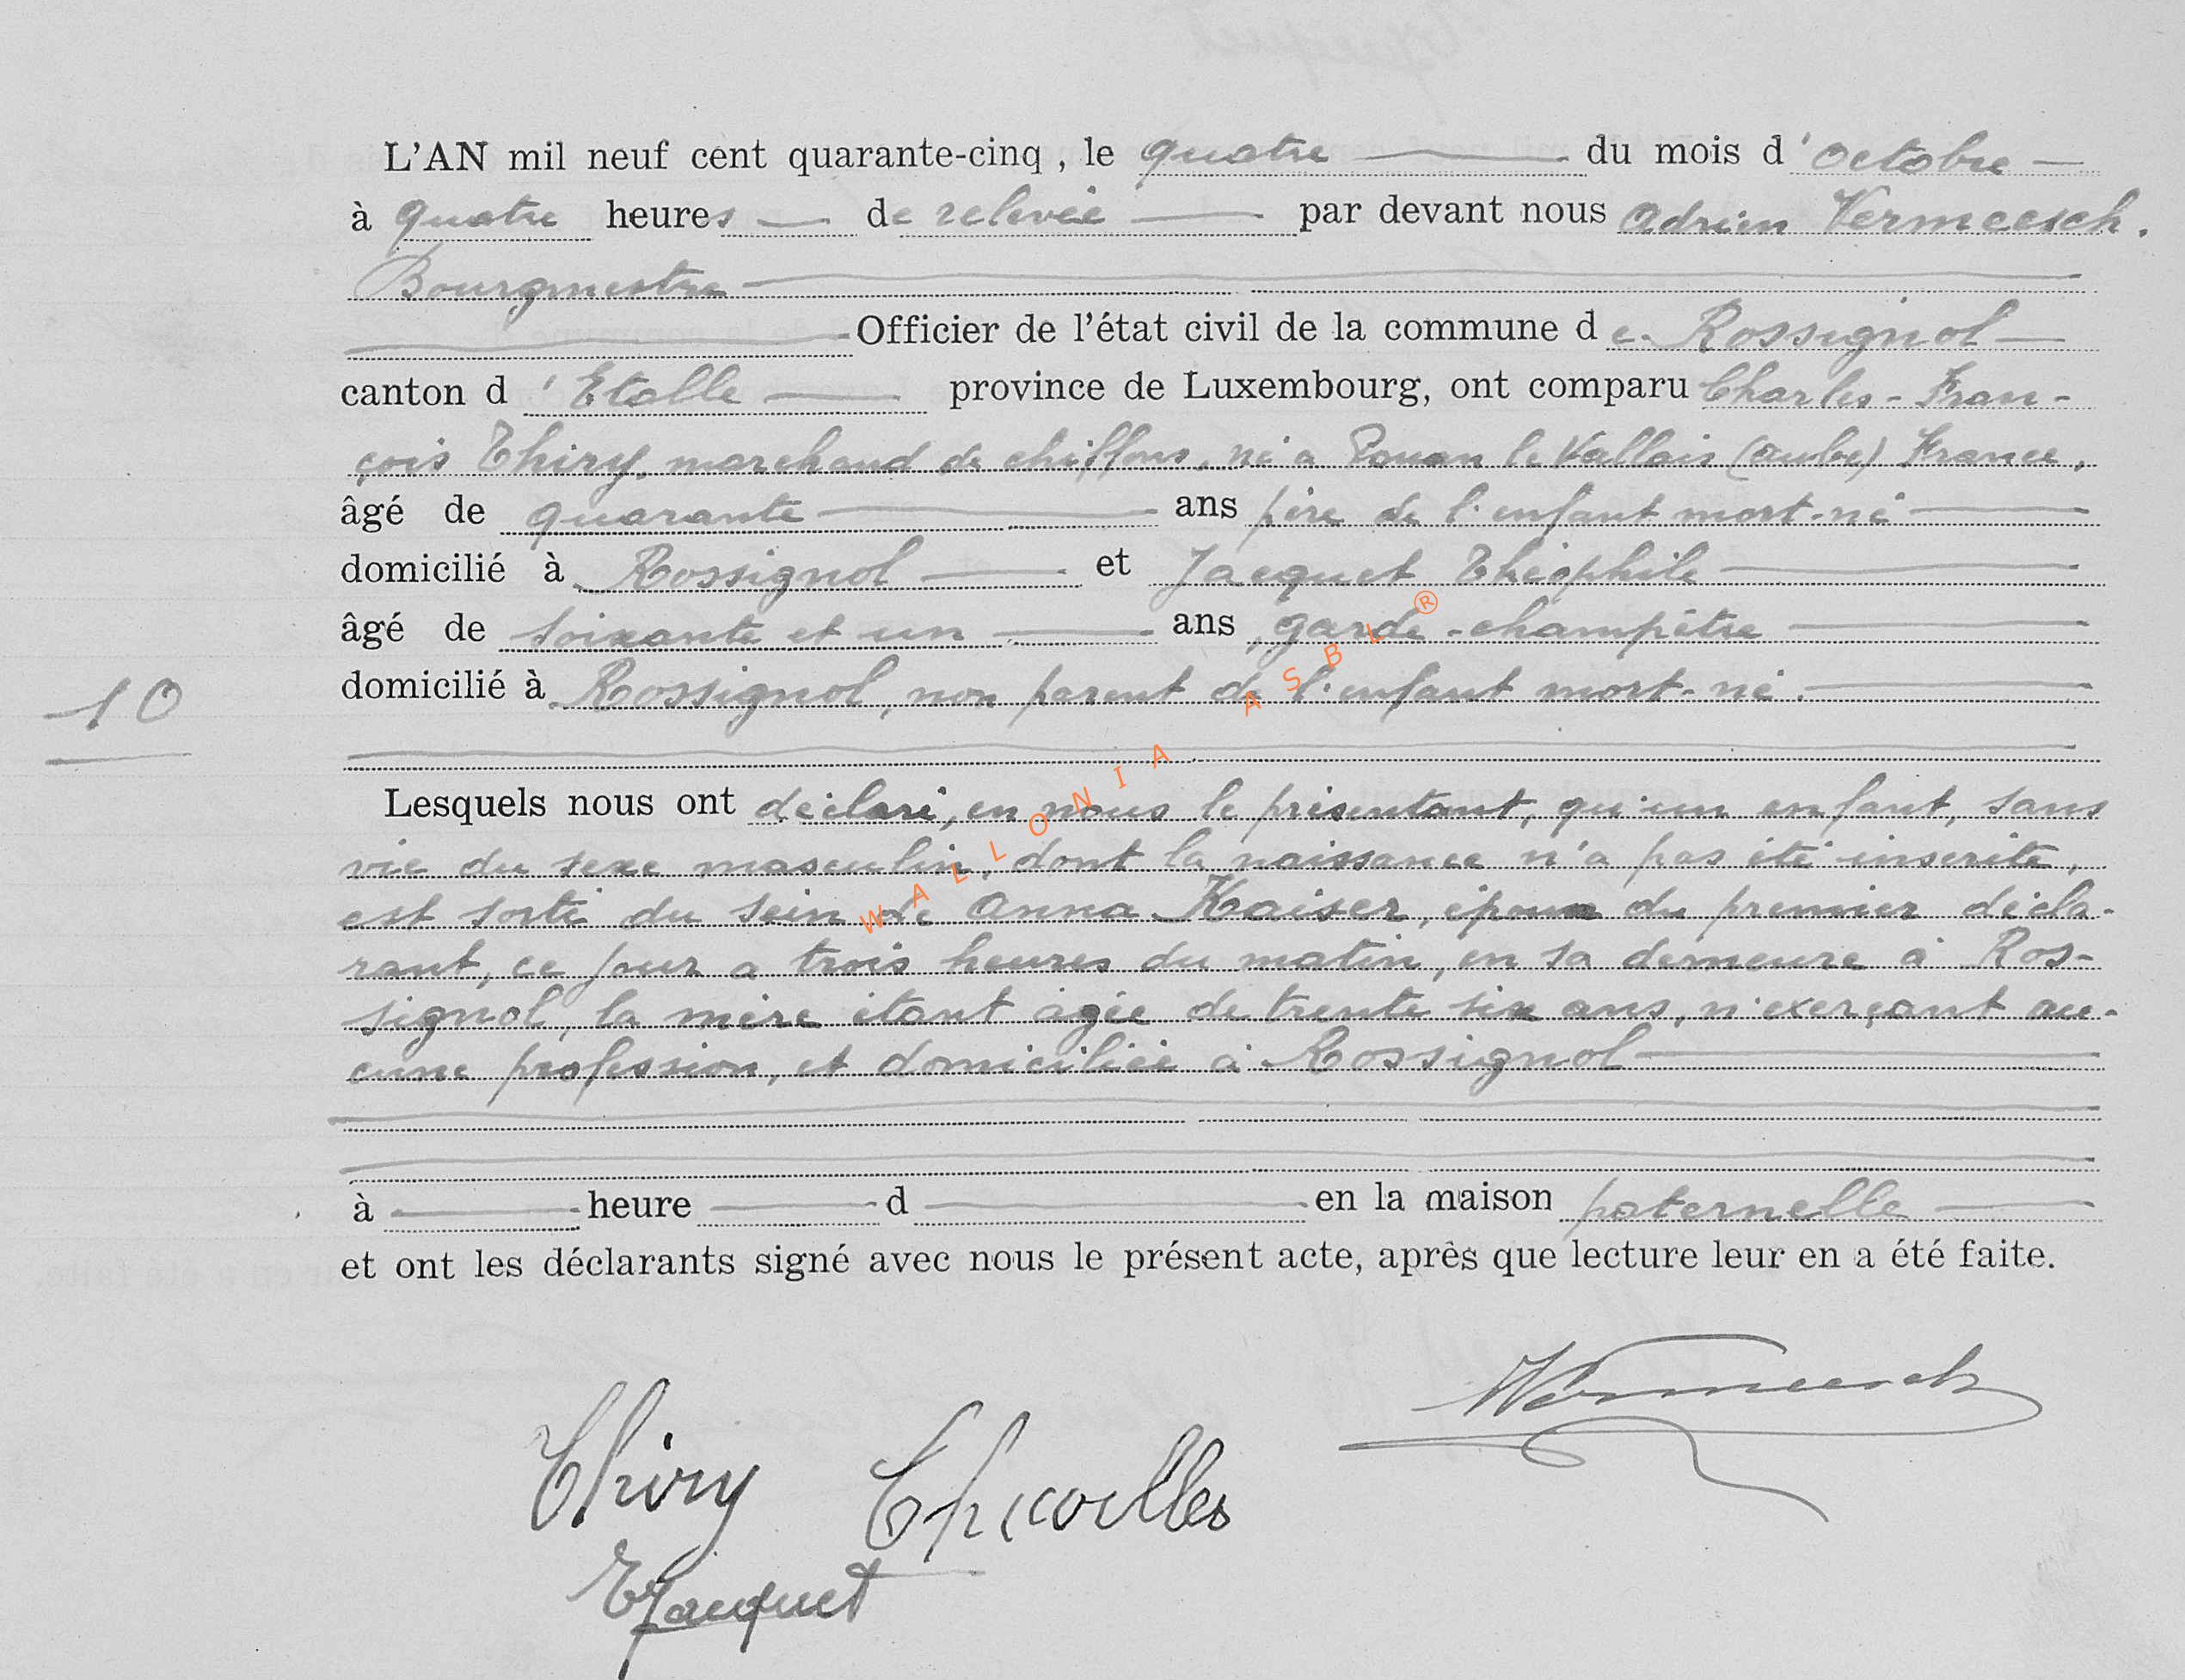 L'AN mil neuf cent quarante-cinq, le quatre du mois d'octobre
à quatre heures de relevée par devant nous Adrien Vermeesch.
Bourgmestre
Officier de l'état civil de la commune de Rossignol
canton d'Etalle province de Luxembourg, ont comparu Charles-Fran-
çois Thiry, marchand de chiffons, né a Pouan le Vallais (Aube) France,
âgé de quarante ans père de l'enfant mort-né
domicilié à Rossignol et Jacquet Théophile
âgé de soixante et un ans, garde-champêtre
domicilié à Rossignol, non parent de l'enfant mort-né.
10
Lesquels nous ont déclaré, en nous le présentant, qu'un enfant, sans
vie du sexe masculin, dont la naissance n'a pas été inscrite,
est sorti du sein de Anna Kaiser, épouse du premier décla-
rant, ce jour a trois heures du matin, en sa demeure à Ros-
signol, la mère étant agée de trente six ans, n'exerçant au-
cune profession, et domiciliée à Rossignol
à heure d en la maison paternelle
et ont les déclarants signé avec nous le présent acte, après que lecture leur en a été faite.
Vermeesch
Thiry
Jacquet
WALLONIA ASBL®